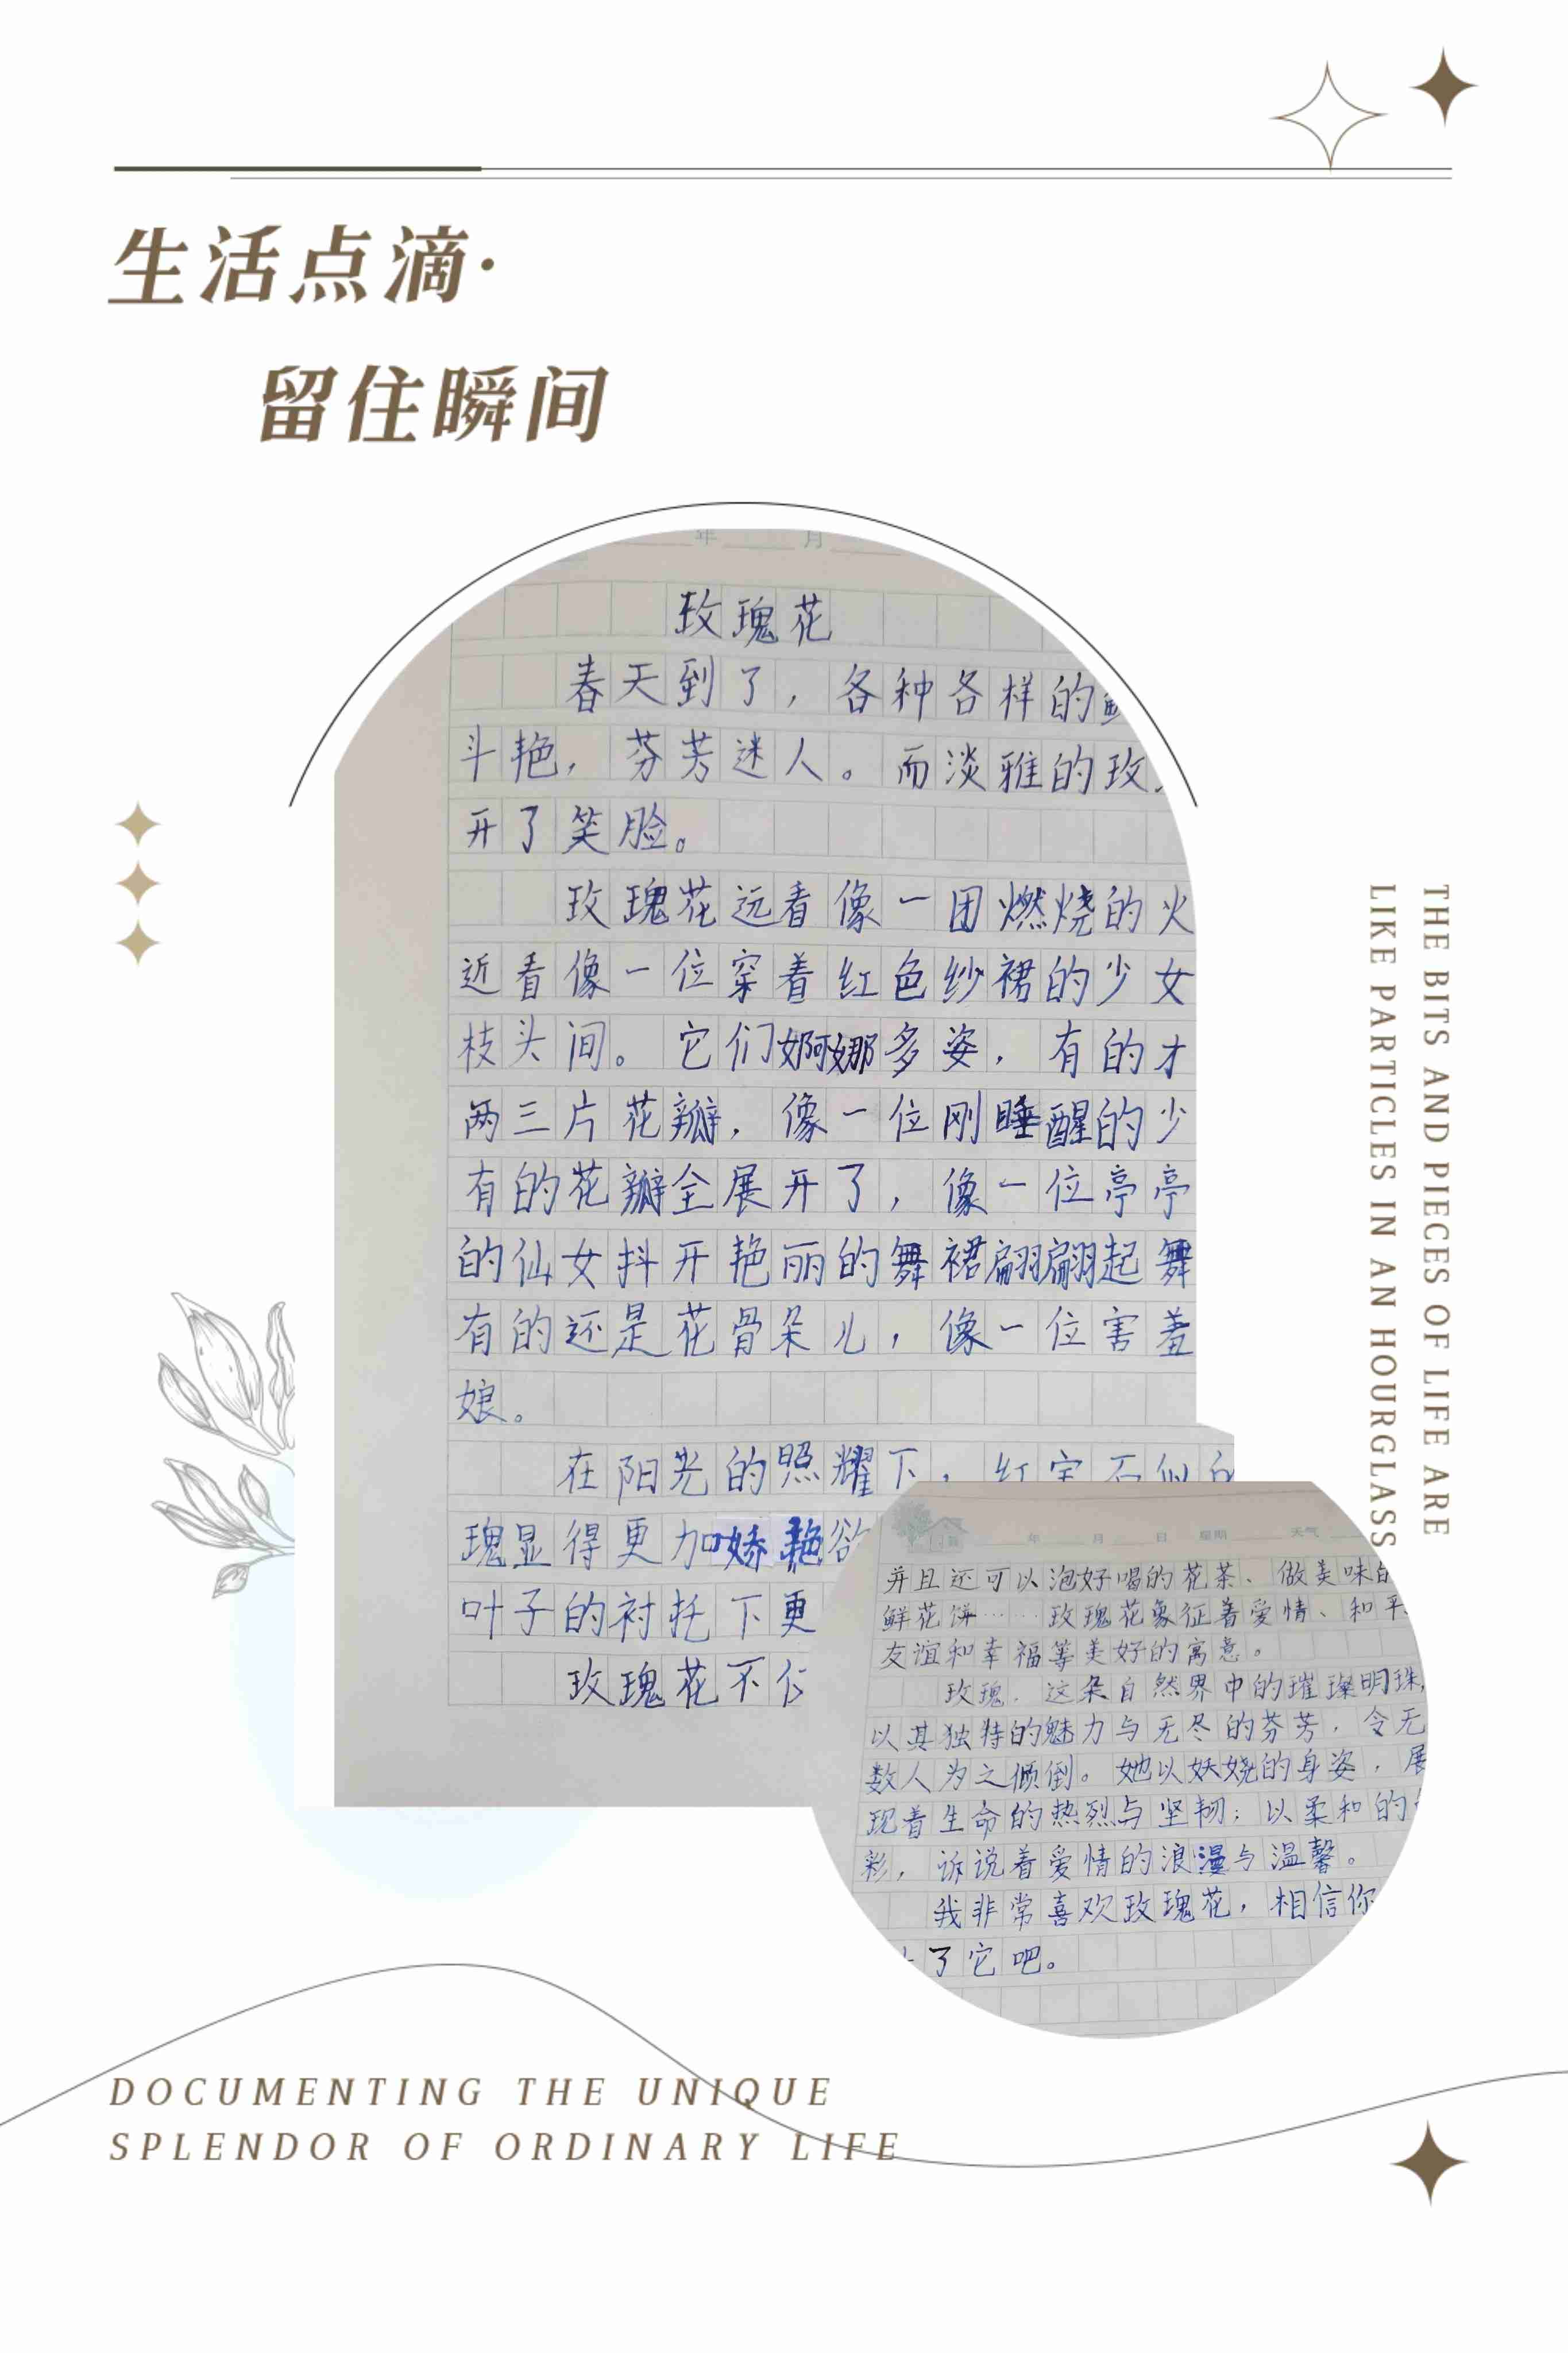 生活点滴·
留住瞬间
年 月
玫瑰花
春天到了，各种各样的
斗艳，芬芳迷人。而淡雅的玫
开了笑脸。
玫瑰花远看像一团燃烧的火
近看像一位穿着红色纱裙的少女
枝头间。它们婀娜多姿，有的才
两三片花瓣，像一位刚睡醒的少
有的花瓣全展开了，像一位亭亭
的仙女抖开艳丽的舞裙翩翩起舞
有的还是花骨朵儿，像一位害羞
娘。
在阳光的照耀下，红宝石似的
瑰显得更加娇艳欲
叶子的衬托下更
玫瑰花不仅
年 月 日 星期 天气
并且还可以泡好喝的花茶、做美味的
鲜花饼……玫瑰花象征着爱情、和平、
友谊和幸福等美好的寓意。
玫瑰，这朵自然界中的璀璨明珠，
以其独特的魅力与无尽的芬芳，令无
数人为之倾倒。她以妖娆的身姿，展
现着生命的热烈与坚韧；以柔和的
彩，诉说着爱情的浪漫与温馨。
我非常喜欢玫瑰花，相信你
了它吧。
THE BITS AND PIECES OF LIFE ARE
LIKE PARTICLES IN AN HOURGLASS
DOCUMENTING THE UNIQUE
SPLENDOR OF ORDINARY LIFE